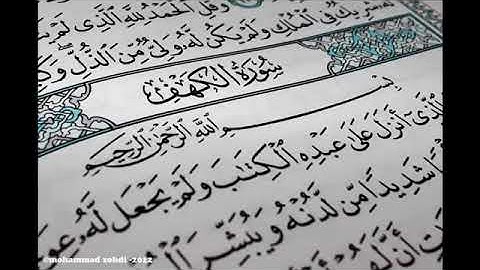 وَقُلِ ٱلْحَمْدُ لِلَّهِ ٱلَّذِى لَمْ
شَرِيكٌ فِى ٱلْمُلْكِ وَلَمْ يَكُن لَّهُۥ وَلِىٌّ مِّنَ ٱلذُّلِّ
سُورَةُ ٱلْكَهْفِ
بِسْمِ ٱللَّهِ ٱلرَّحْمَٰنِ ٱلرَّحِيمِ
ٱلَّذِىٓ أَنزَلَ عَلَىٰ عَبْدِهِ ٱلْكِتَٰبَ وَلَمْ يَجْعَل لَّهُۥ
شَدِيدًا مِّن لَّدُنْهُ وَيُبَشِّرَ
أَنَّ لَهُ
©mohammad zohdi -2012